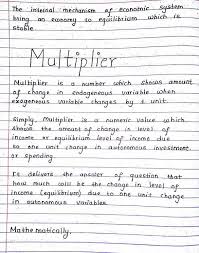 The internal mechanism of economic system
bring an economy to equilibrium which is
stable
Multiplier
Multiplier is a number which shows amount
of change in endogeneous variable when
exogeneous variable changes by 1 unit.
Simply, Multiplier is a numeric value which
shows the amount of change in level of
income or equilibrium level of income due
to one unit change in autonomous investment
or spending.
It delivers the answer of question that
how much will be the change in level of
income (equilibrium) due to one unit change
in autonomous variables.
Mathematically,